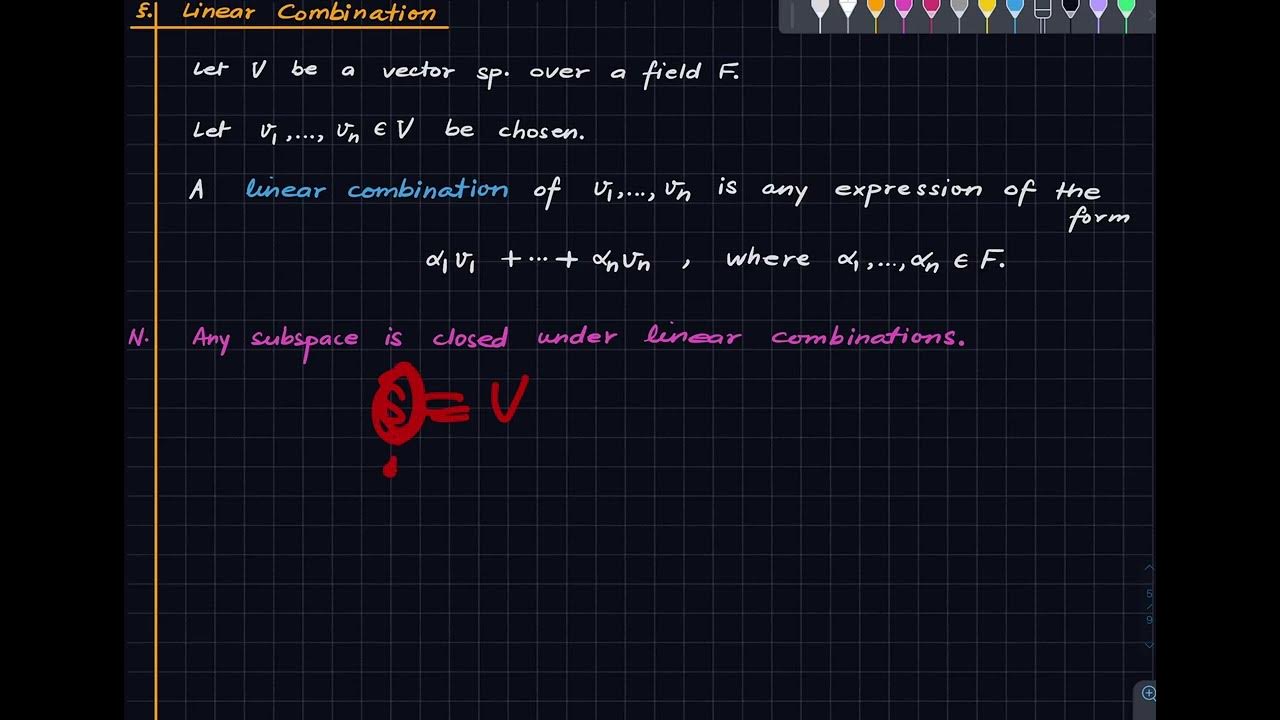 §. Linear Combination
Let V be a vector sp. over a field F.
Let v₁,..., vₙ ∈ V be chosen.
A linear combination of v₁,..., vₙ is any expression of the
form
α₁v₁ + ··· + αₙvₙ , where α₁,..., αₙ ∈ F.
N. Any subspace is closed under linear combinations.
S = V
5
/
9